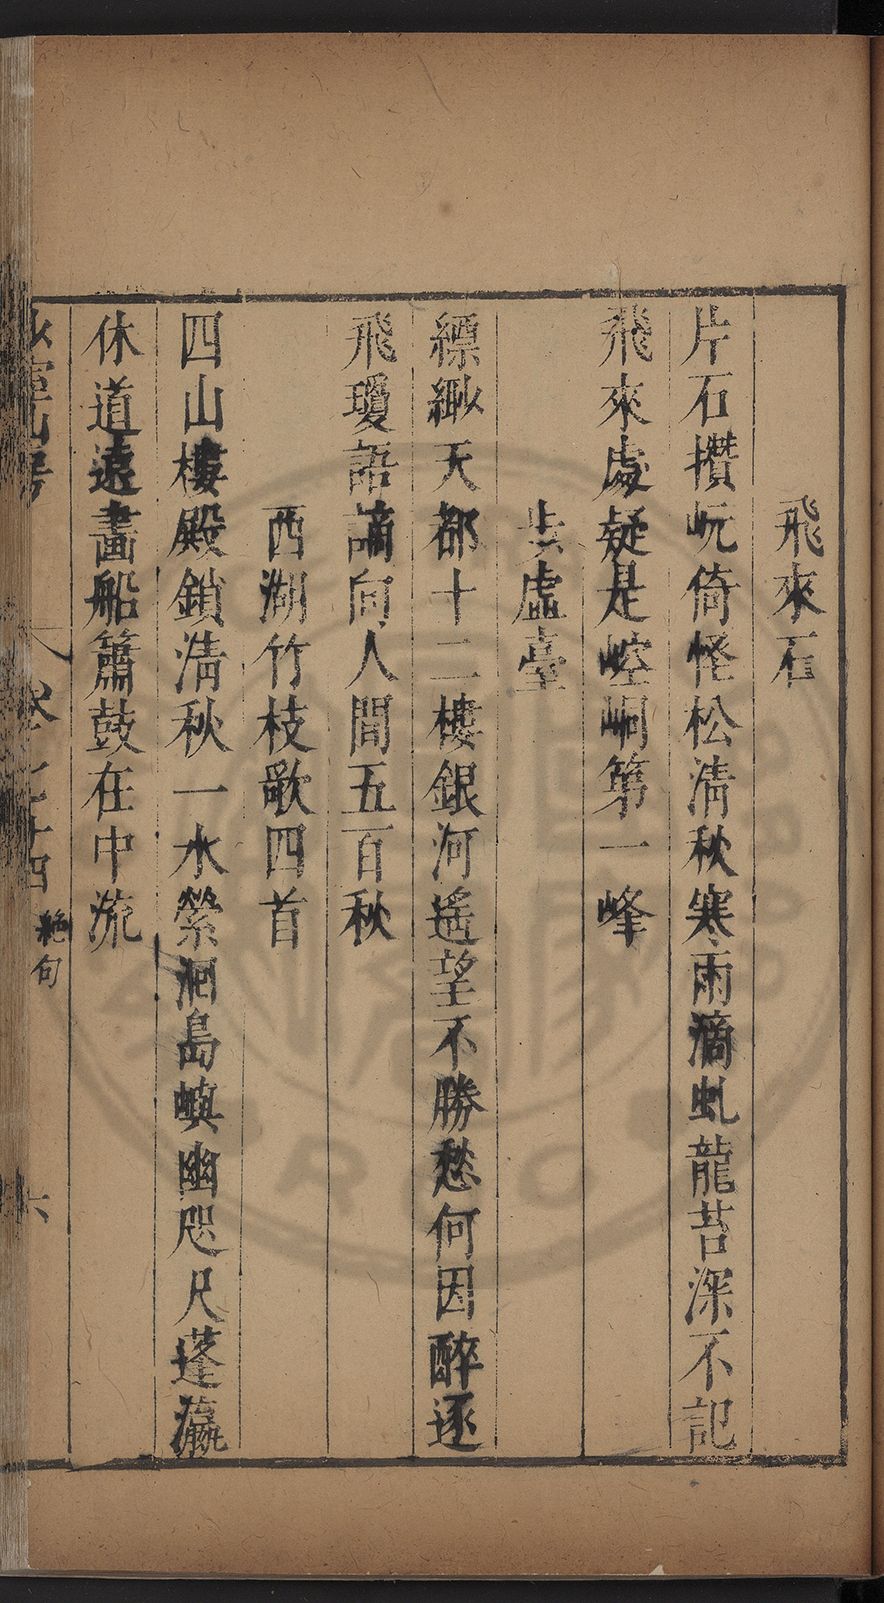 飛來石
片石攢岏倚怪松清秋寒雨滴虬龍苔深不記
飛來處疑是崆峒第一峰
步虛臺
縹緲天都十二樓銀河遙望不勝愁何因醉逐
飛瓊語謫向人間五百秋
西湖竹枝歌四首
四山樓殿鎖清秋一水縈洄島嶼幽咫尺蓬瀛
休道遠畫船簫鼓在中流
山房
卷之十四
絶句
六